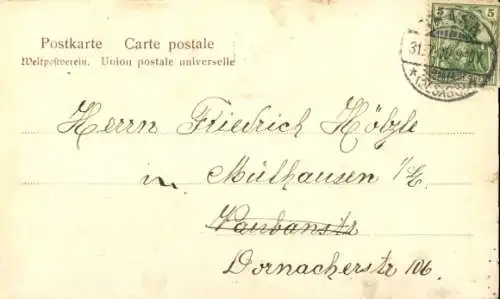 Postkarte Carte postale
Weltpostverein. Union postale universelle
5 5
31.
Herrn Friedrich Hölzle
in Mülhausen i/E.
Vaubanstr
Dornacherstr 106.